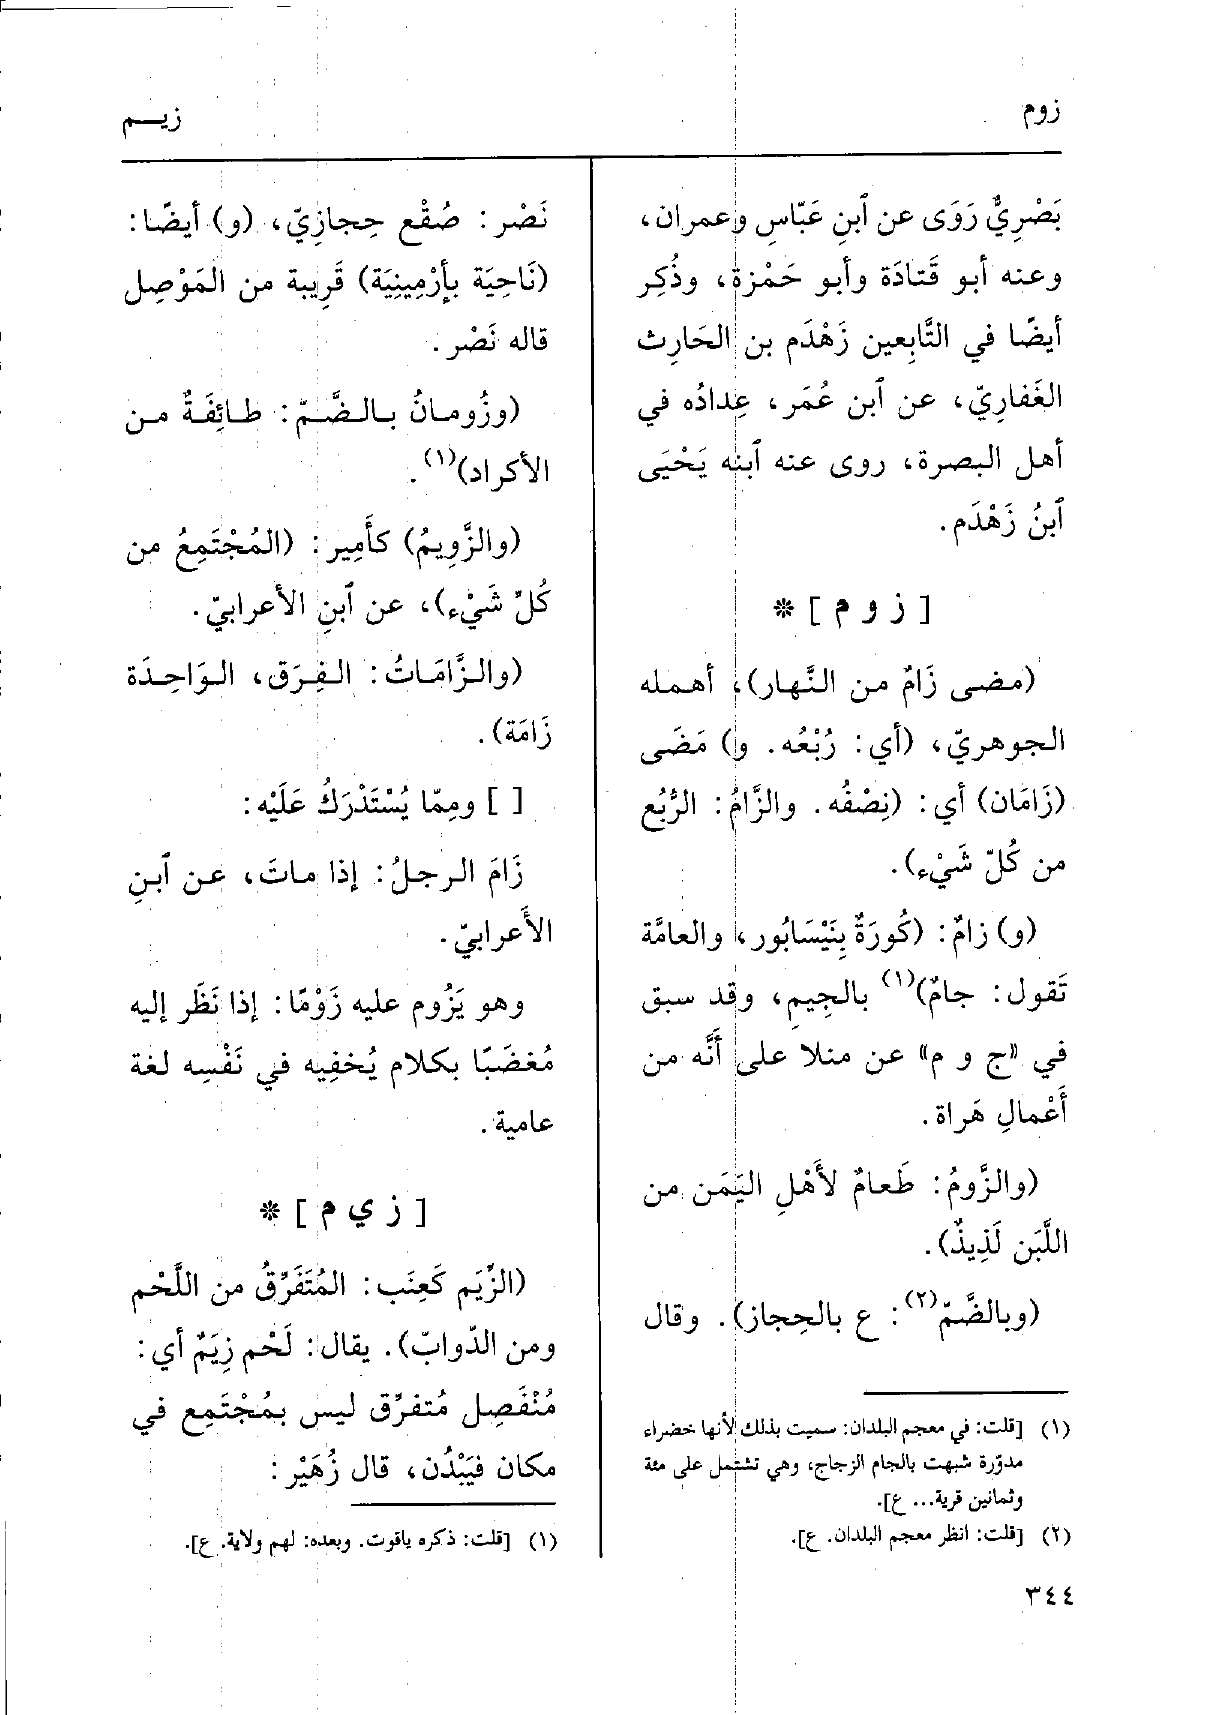 زوم
زيـم
بَصْرِيٌّ رَوَى عن ٱبنِ عَبّاسِ وعمران،
وعنه أبو قَتادَة وأبو حَمْزة، وذُكِر
أيضًا في التَّابِعين زَهْدَم بن الحَارِث
الغَفاريّ، عن ٱبن عُمَر، عِدادُه في
أهل البصرة، روى عنه ٱبنه يَحْيَى
ٱبنُ زَهْدَم.
[ ز و م ] *
(مضى زَامٌ من النَّهار)، أهمله
الجوهريّ، (أي: رُبْعُه. و) مَضَى
(زَامَان) أي: (نِصْفُه. والزَّامُ: الرُّبُع
من كُلّ شَيْء).
(و) زامٌ: (كُورَةٌ بِنَيْسَابُور، والعامَّة
تَقول: جامٌ)(١) بالجِيمِ، وقد سبق
في «ج و م» عن منلا على أَنَّه من
أَعْمالِ هَراة.
(والزَّومُ: طَعامٌ لأَهْلِ اليَمَن من
اللَّبَن لَذِيذٌ).
(وبالضَّمّ(٢): ع بالحِجاز). وقال
(١) [قلت: في معجم البلدان: سميت بذلك لأنها خضراء
مدوّرة شبهت بالجام الزجاج، وهي تشتمل على مئة
وثمانين قرية... ع].
(٢) [قلت: انظر معجم البلدان. ع].
نَصْر: صُقْع حِجازِيّ، (و) أيضًا:
(نَاحِيَة بأِرْمِينِيَة) قَرِيبة من المَوْصِل
قاله نَصْر.
(وزُومانُ بالضَّمّ: طائِفَةٌ من
الأكراد)(١).
(والزَّوِيمُ) كأَمِير: (المُجْتَمِعُ من
كُلّ شَيْء)، عن ٱبنِ الأعرابيّ.
(والزَّامَاتُ: الفِرَق، الوَاحِدَة
زَامَة).
[ ] ومِمّا يُسْتَدْرَكُ عَلَيْه:
زَامَ الرجلُ: إذا ماتَ، عن ٱبنِ
الأَعرابيّ.
وهو يَزُوم عليه زَوْمًا: إذا نَظَر إليه
مُغضَبًا بكلام يُخفِيه في نَفْسِه لغة
عامية.
[ ز ي م ] *
(الزِّيَم كَعِنَب: المُتَفَرِّقُ من اللَّحْم
ومن الدّوابّ). يقال: لَحْم زِيَمٌ أي:
مُنْفَصِل مُتفرِّق ليس بمُجْتَمِع في
مكان فيَبْدُن، قال زُهَيْر:
(١) [قلت: ذكره ياقوت. وبعده: لهم ولاية. ع].
٣٤٤